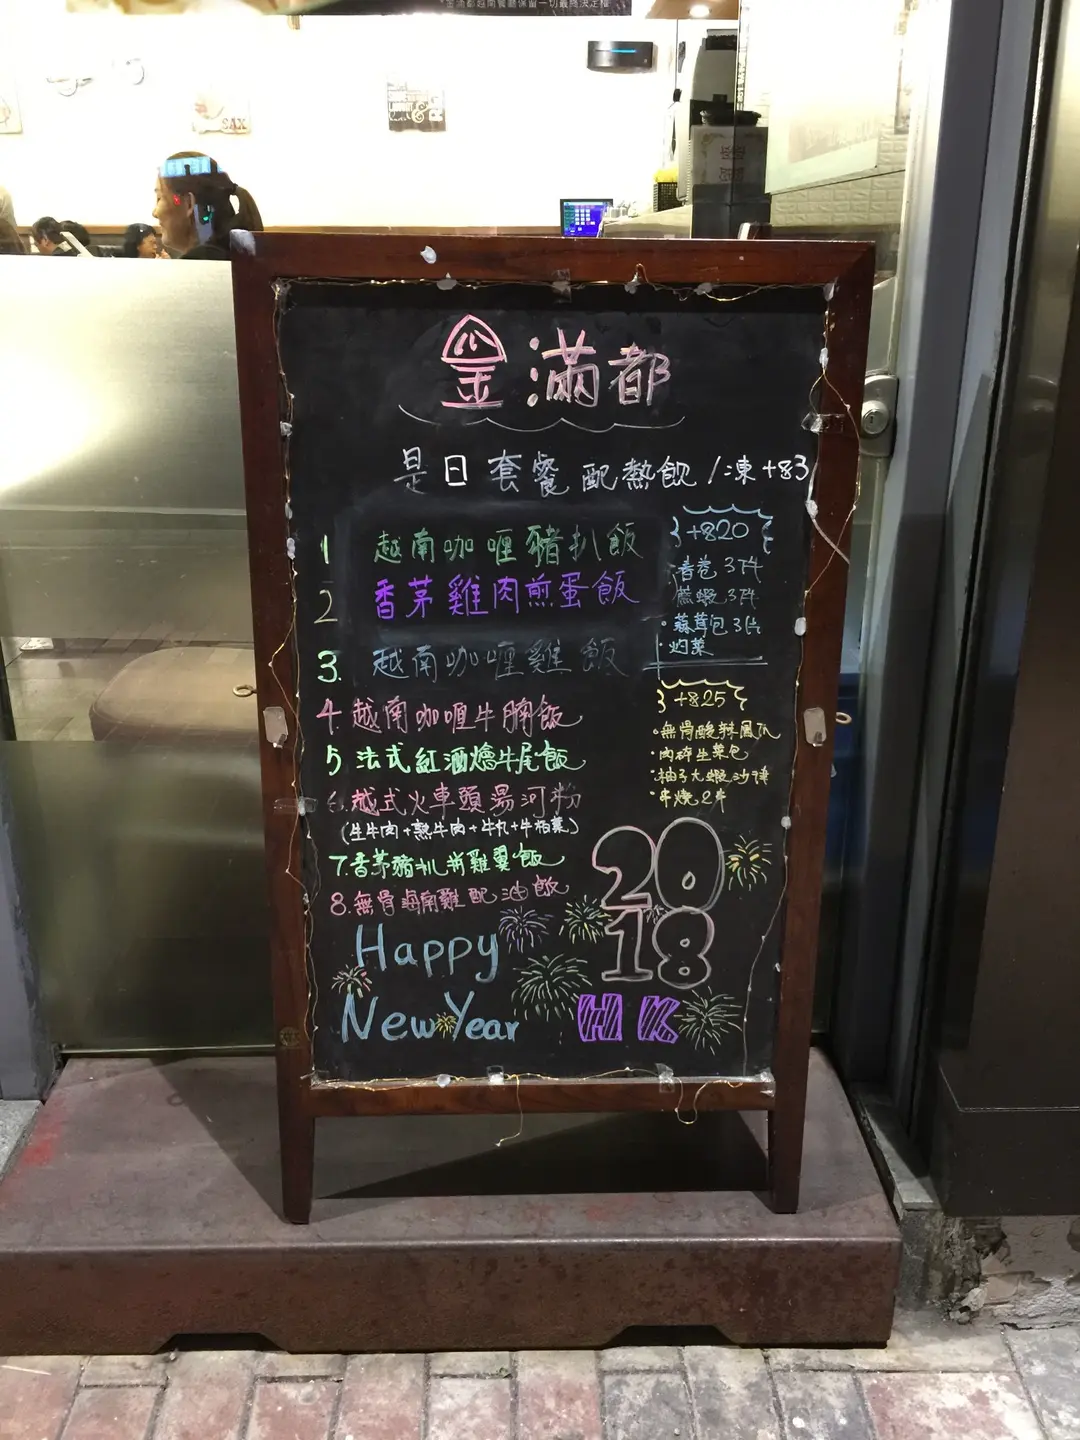 金滿都
是日套餐配熱飲/凍+$3
1 越南咖喱豬扒飯
2 香茅雞肉煎蛋飯
3. 越南咖喱雞飯
4. 越南咖喱牛腩飯
5 法式紅酒燴牛尾飯
6. 越式火車頭湯河粉
(生牛肉+熟牛肉+牛丸+牛柏葉)
7. 香茅豬扒併雞翼飯
8. 無骨海南雞配油飯
+$20
春卷 3件
蔗蝦 3件
·蒜茸包 3片
·灼菜
+$25
·無骨酸辣鳳爪
·肉碎生菜包
·柚子大蝦沙律
·串燒2串
2018
Happy
New Year
HK
SAX